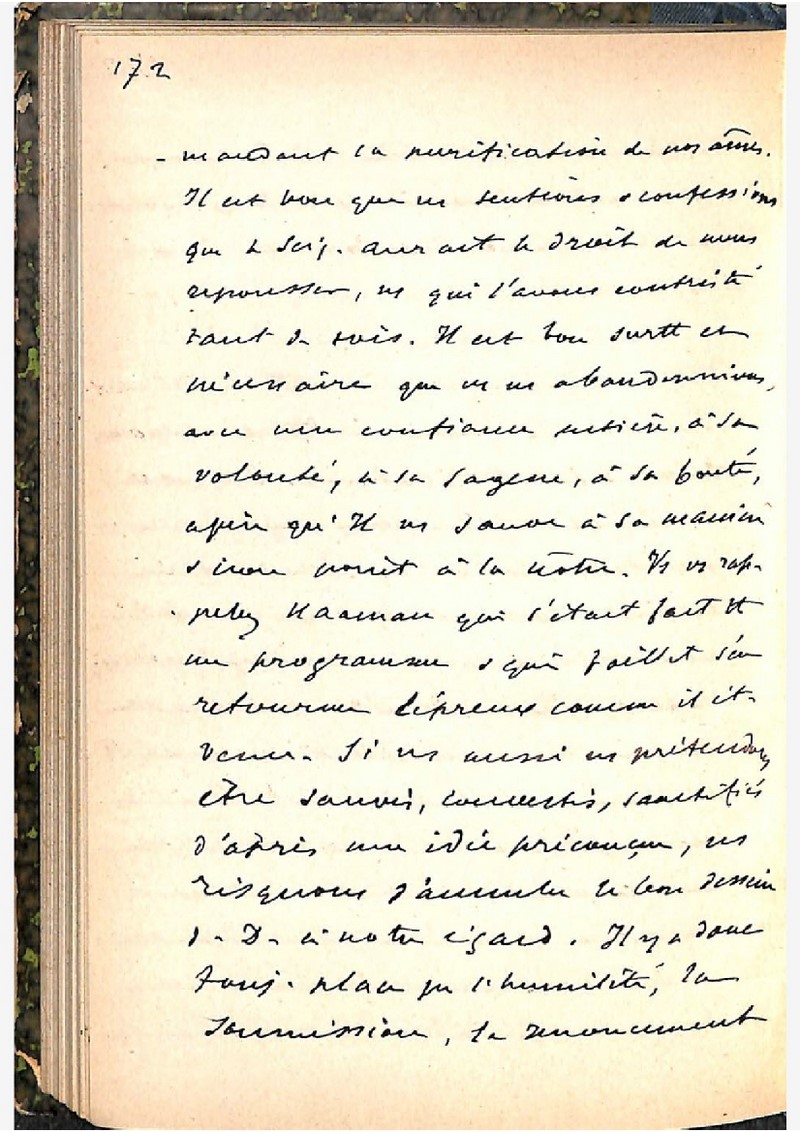 172
- mandant la purification de nos âmes.
Il est bon que ns sentions & confessions
que le Seig. aurait le droit de nous
repousser, ns qui l'avons contristé
tant de fois. Il est bon surtt et
nécessaire que ns ns abandonnions,
avec une confiance entière, à sa
volonté, à sa sagesse, à sa bonté,
afin qu'Il ns sauve à sa manière
& non point à la nôtre. Vs vs rap-
- pelez Naaman qui s'était fait tt
un programme & qui faillit s'en
retourner lépreux comme il ét.
venu. Si ns aussi ns prétendons
être sauvés, convertis, sanctifiés
d'après une idée préconçue, ns
risquons d'annuler le bon dessein
d. D. à notre égard. Il y a donc
touj. place pr l'humilité, la
soumission, le renoncement